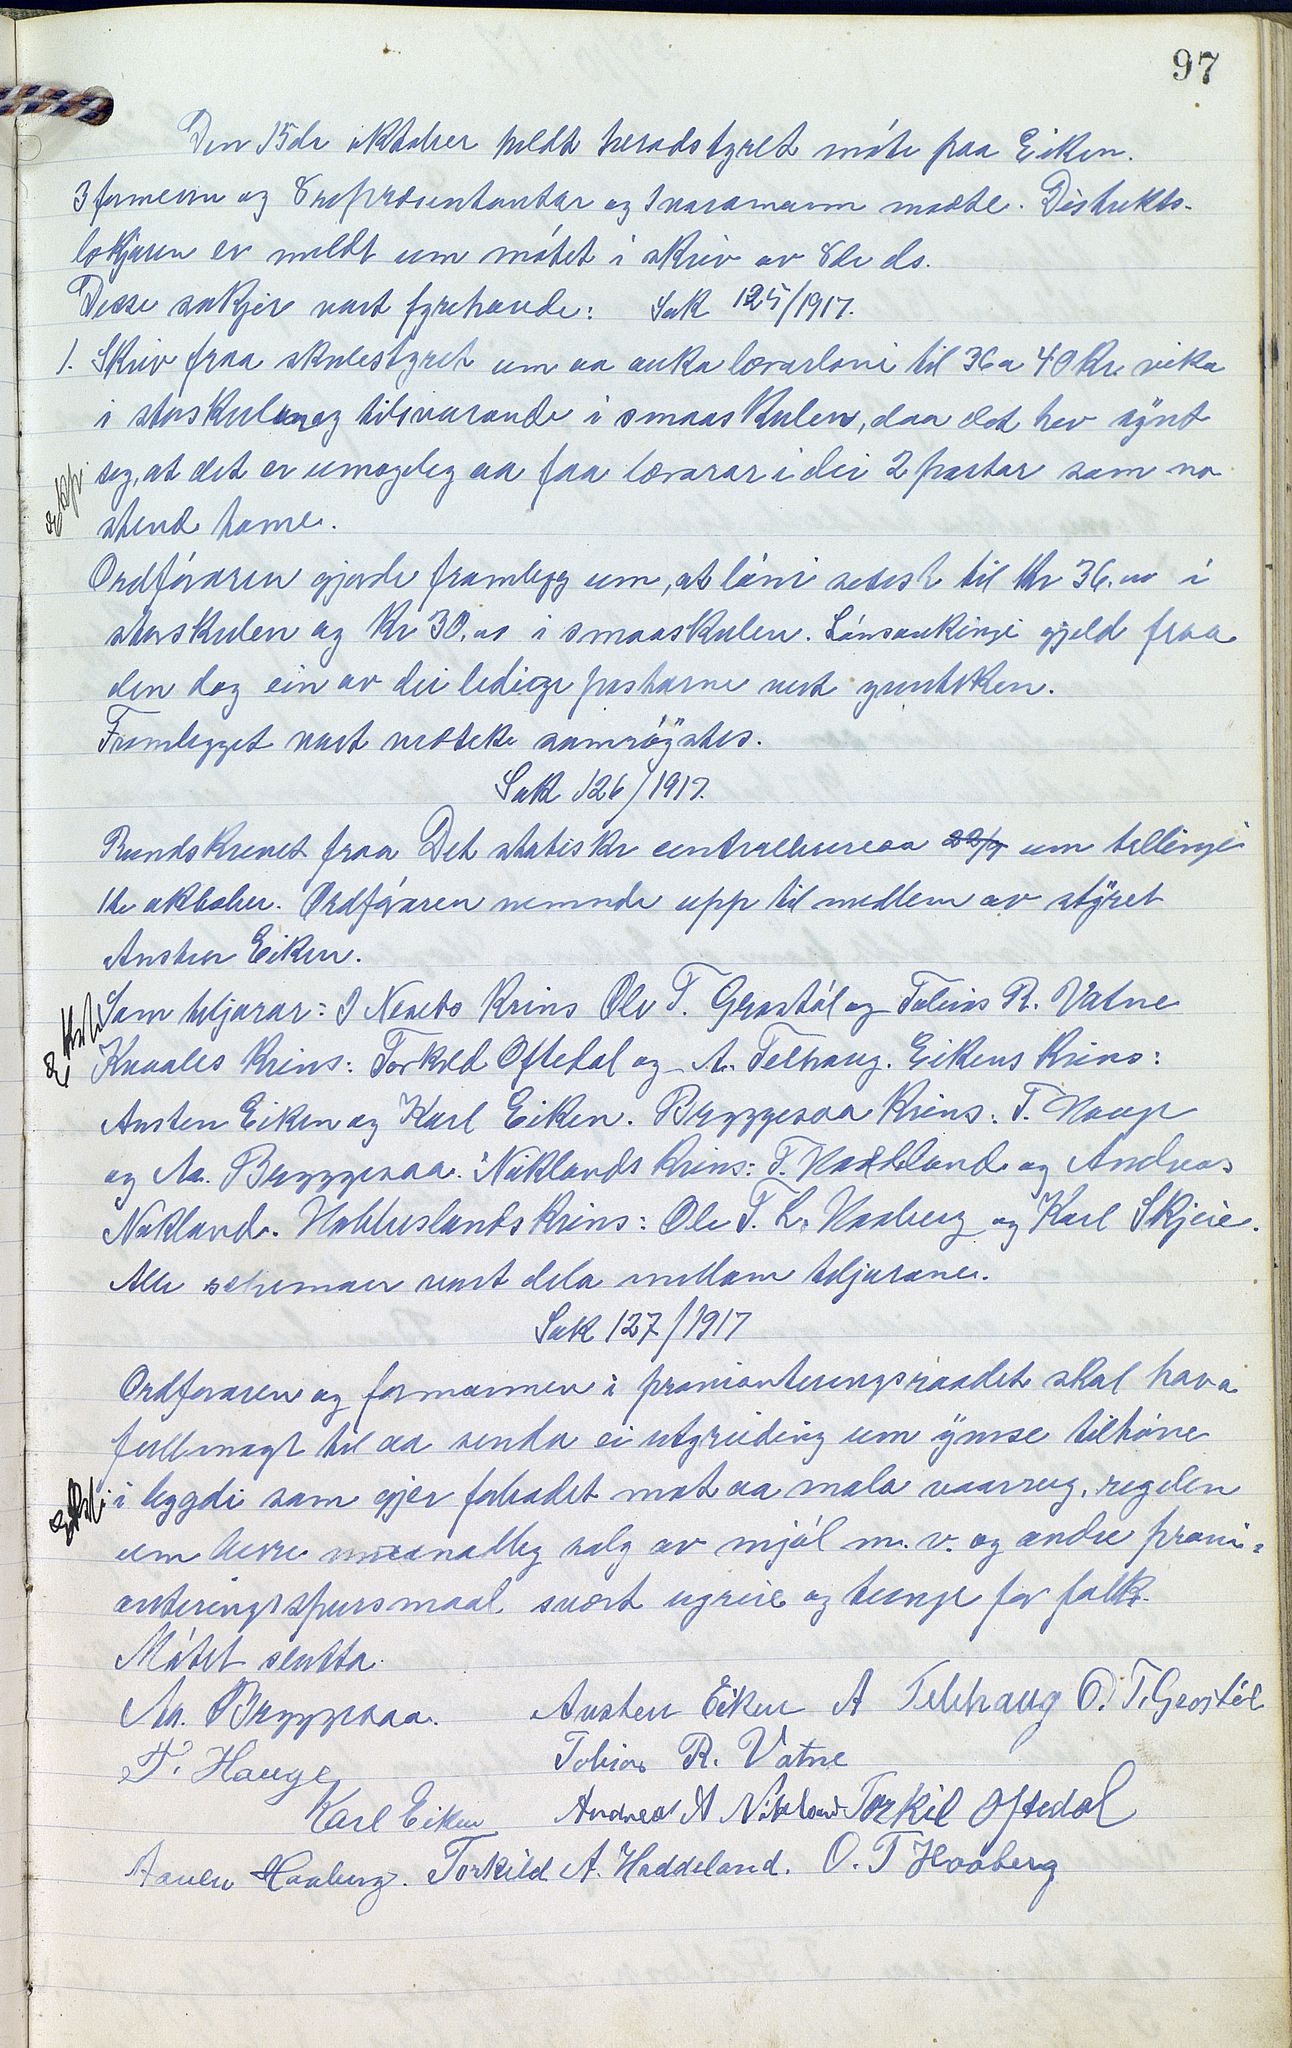 97
Den 15de oktober heldt heradstyret møte paa Eiken.
3 formenn og 8 representantar og 1 varamann mødte. Distrikts-
lækjaren er meldt um møtet i skriv av 8de ds.
Desse sakjer vart fyrehavde: Sak 125/1917.
1. Skriv fraa skulestyret um aa auka lærarløni til 36 a 40 kr. vika
i storskulen og tilsvarande i smaaskulen, daa det hev synt
seg, at det er umogeleg aa faa lærarar i dei 2 postar som no
stend tome.
Ordføraren gjorde framlegg um, at løni setest til kr 36.00 i
storskulen og kr 30.00 i smaaskulen. Lønsaukingi gjeld fraa
den dag ein av dei ledige postarne vert motteken.
Framlegget vart vedteke samrøystes.
Sak 126/1917.
Rundskrivet fraa Det statistiske centralbureaa 22/9 um teljingi
1te oktober. Ordføraren nemnde upp til medlem av styret
Austen Eiken.
Som teljarar: I Nesets krins Ole T. Grostøl og Tobias R. Vatne
Kvaales krins: Torkild Oftedal og A. Telhaug. Eikens krins:
Austen Eiken og Karl Eiken. Bryggesaa krins: T. Haug
og Aa. Bryggesaa. Nøklands krins: T. Haddeland og Andreas
Nøkland. Hobbeslands krins: Ole T. L. Haaberg og Karl Skjeie.
Alle schemaer vart dela millom teljarane.
Sak 127/1917
Ordføraren og formannen i provianteringsraadet skal hava
fullmagt til aa senda ei utgreiding um ymse tilhøve
i bygdi som gjer forbodet mot aa mala vaarrug, reglen
um berre maanadleg salg av mjøl m. v. og andre provi-
anteringsspursmaal svært ugreie og tunge for folk.
Møtet slutta.
Aa. Bryggesaa. Austen Eiken A Telhaug O. T. Grostøl
T. Hauge Tobias R. Vatne
Karl Eiken Andreas A Nøkland Torkil Oftedal
Haaberg. Torkild A. Haddeland. O. T Haaberg